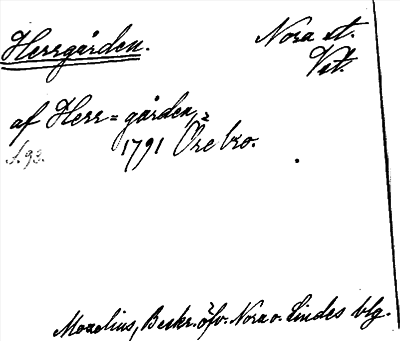 Herrgården.
Nora st.
Vet.
af Herr=gården,
S. 93.
1791 Örebro.
Morelius, Beskr. öfv. Nora o. Lindes blg.